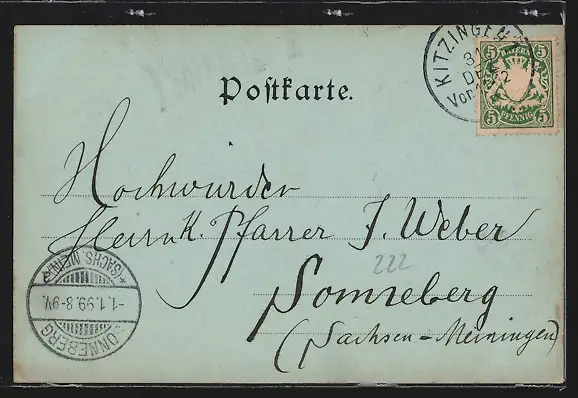 Postkarte.
KITZINGEN
31
DEZ
Vor
5 BAYERN 5
5 PFENNIG 5
Hochwürden
Herrn K. Pfarrer J. Weber
222
Sonneberg
(Sachsen-Meiningen)
SONNEBERG
-1.1.99.8-9V.
*(SACHS MEIN.)*